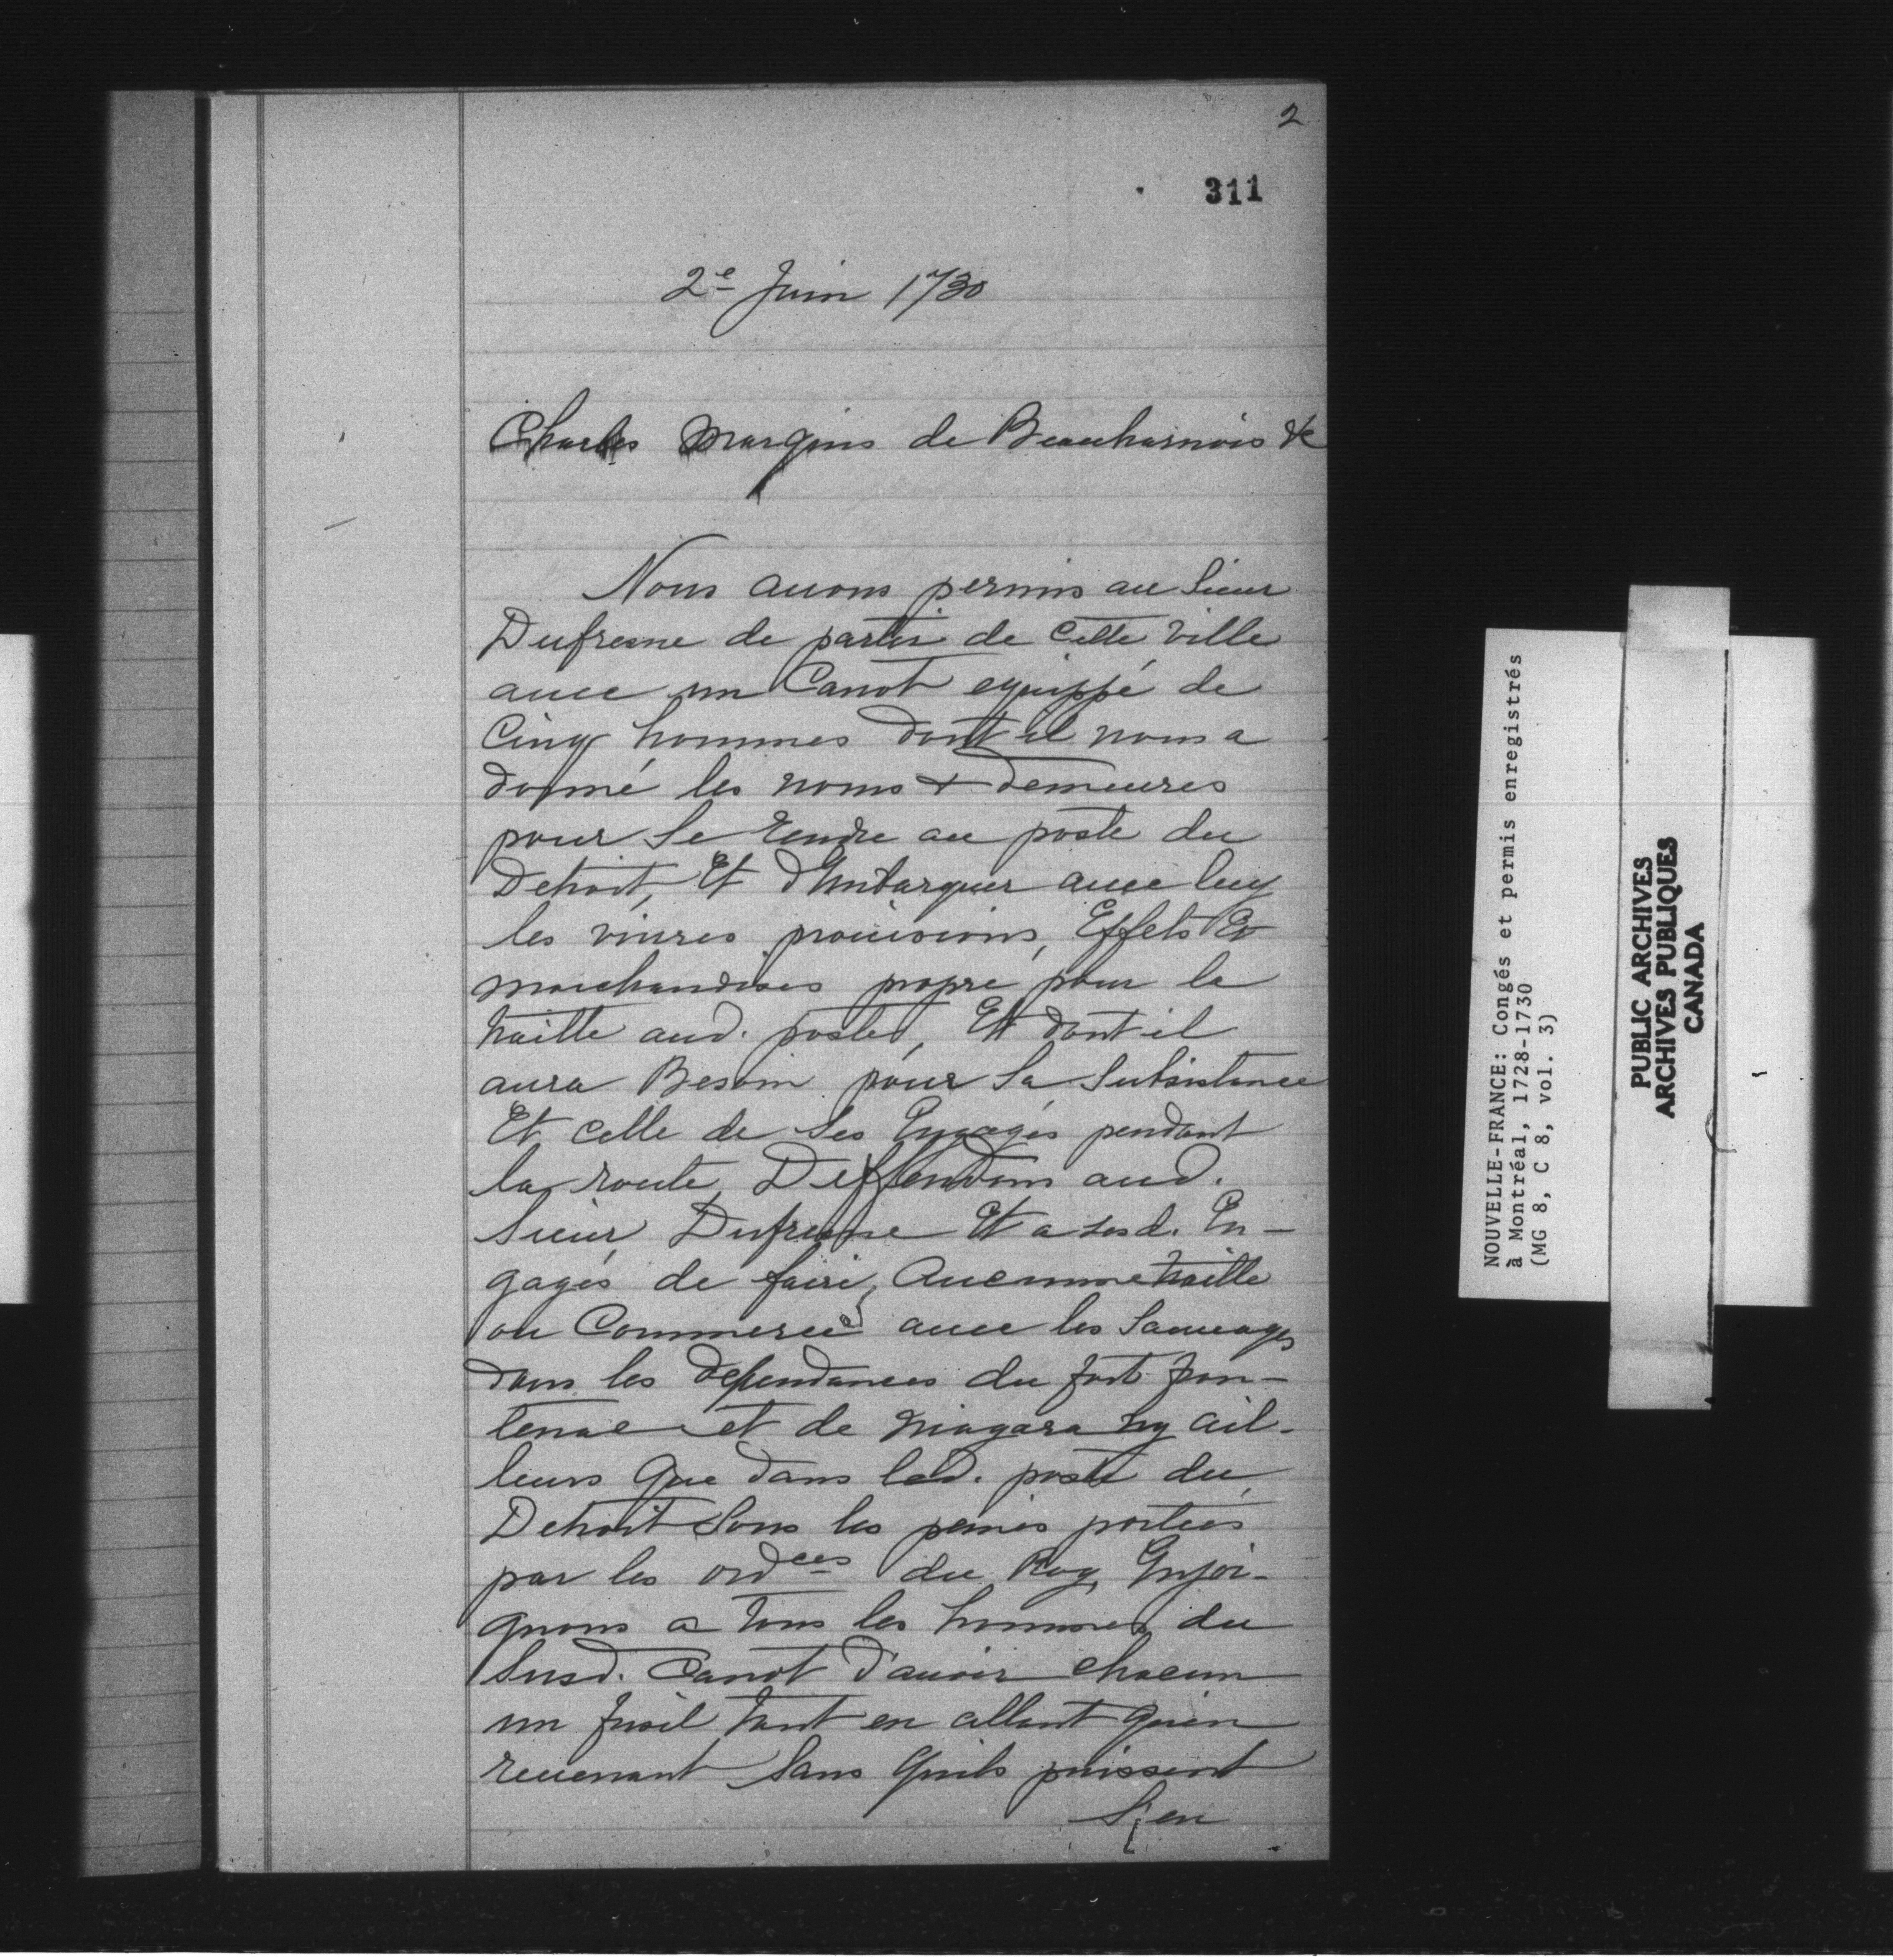 2
311
2e Juin 1730
Charles Marquis de Beauharnois &c
Nous auons permis au Sieur
Dufresne de partir de Cette Ville
auec un Canot equippé de
Cinq hommes dont il nous a
donné les noms & demeures
pour Se rendre au poste du
Detroit, Et d'Embarquer auec luy
les viures prouisions, Effets Et
marchandises propre pour la
traitte aud. poste, Et dont il
aura Besoin pour Sa Subsistance
Et celle de Ses Engagés pendant
la route, Deffendons aud.
Sieur Dufresne Et a sesd. En-
gagés de faire Aucunne traitte
ou Commerce auec les Sauuages
dans les dependances du fort fron-
tenac et de Niagara ny ail-
leurs que dans led. poste du
Detroit Sous les peines portées
par les ordces du Roy, Enjoi-
gnons a tous les hommes du
Susd. Canot d'auoir chacun
un fusil tant en allant qu'en
reuenant Sans qu'ils puissent
S'en
NOUVELLE-FRANCE: Congés et permis enregistrés
à Montréal, 1728-1730
(MG 8, C 8, vol. 3)
PUBLIC ARCHIVES
ARCHIVES PUBLIQUES
CANADA